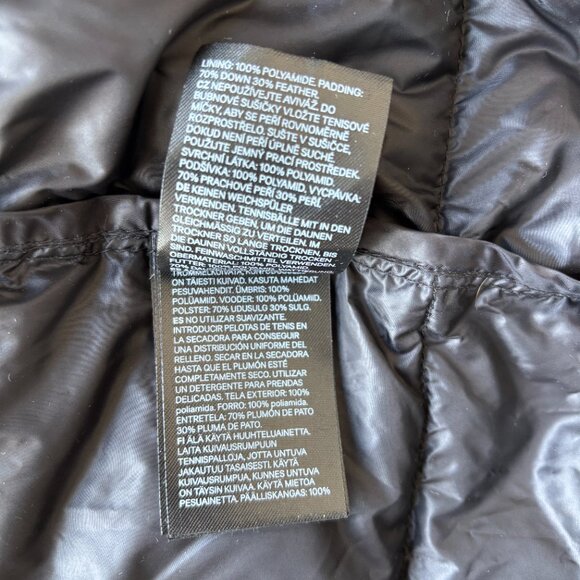 LINING: 100% POLYAMIDE. PADDING:
70% DOWN 30% FEATHER.
CZ NEPOUŽÍVEJTE AVIVÁŽ. DO
BUBNOVÉ SUŠIČKY VLOŽTE TENISOVÉ
MÍČKY, ABY SE PEŘÍ ROVNOMĚRNĚ
ROZPROSTŘELO. SUŠTE V SUŠIČCE,
DOKUD NENÍ PEŘÍ ÚPLNĚ SUCHÉ.
POUŽIJTE JEMNÝ PRACÍ PROSTŘEDEK.
SVRCHNÍ LÁTKA: 100% POLYAMID.
PODŠÍVKA: 100% POLYAMID. VYCPÁVKA:
70% PRACHOVÉ PEŘÍ 30% PEŘÍ.
DE KEINEN WEICHSPÜLER
VERWENDEN. TENNISBÄLLE MIT IN DEN
TROCKNER GEBEN, UM DIE DAUNEN
GLEICHMÄSSIG ZU VERTEILEN. IM
TROCKNER SO LANGE TROCKNEN, BIS
DIE DAUNEN VOLLSTÄNDIG TROCKEN
SIND. FEINWASCHMITTEL VERWENDEN.
OBERMATERIAL: 100%
FUTTER
ON TÄIESTI KUIVAD. KASUTA MAHEDAT
PESUVAHENDIT. ÜMBRIS: 100%
POLÜAMIID. VOODER: 100% POLÜAMIID.
POLSTER: 70% UDUSULG 30% SULG.
ES NO UTILIZAR SUAVIZANTE.
INTRODUCIR PELOTAS DE TENIS EN
LA SECADORA PARA CONSEGUIR
UNA DISTRIBUCIÓN UNIFORME DEL
RELLENO. SECAR EN LA SECADORA
HASTA QUE EL PLUMÓN ESTÉ
COMPLETAMENTE SECO UTILIZAR
UN DETERGENTE PARA PRENDAS
DELICADAS. TELA EXTERIOR: 100%
poliamida. FORRO: 100% poliamida.
ENTRETELA: 70% PLUMÓN DE PATO
30% PLUMA DE PATO.
FI ÄLÄ KÄYTÄ HUUHTELUAINETTA.
LAITA KUIVAUSRUMPUUN
TENNISPALLOJA, JOTTA UNTUVA
JAKAUTUU TASAISESTI. KÄYTÄ
KUIVAUSRUMPUA, KUNNES UNTUVA
ON TÄYSIN KUIVAA. KÄYTÄ MIETOA
PESUAINETTA. PÄÄLLISKANGAS: 100%